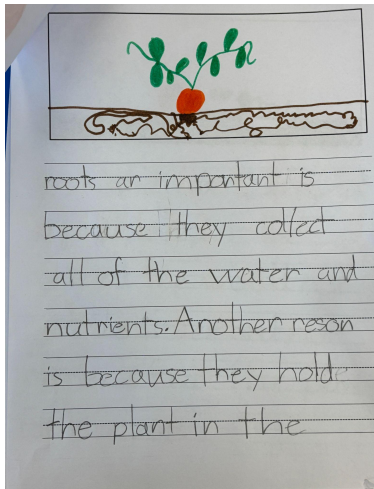 roots an important is
because they collect
all of the water and
nutrients. Another reson
is because they hold
the plant in the